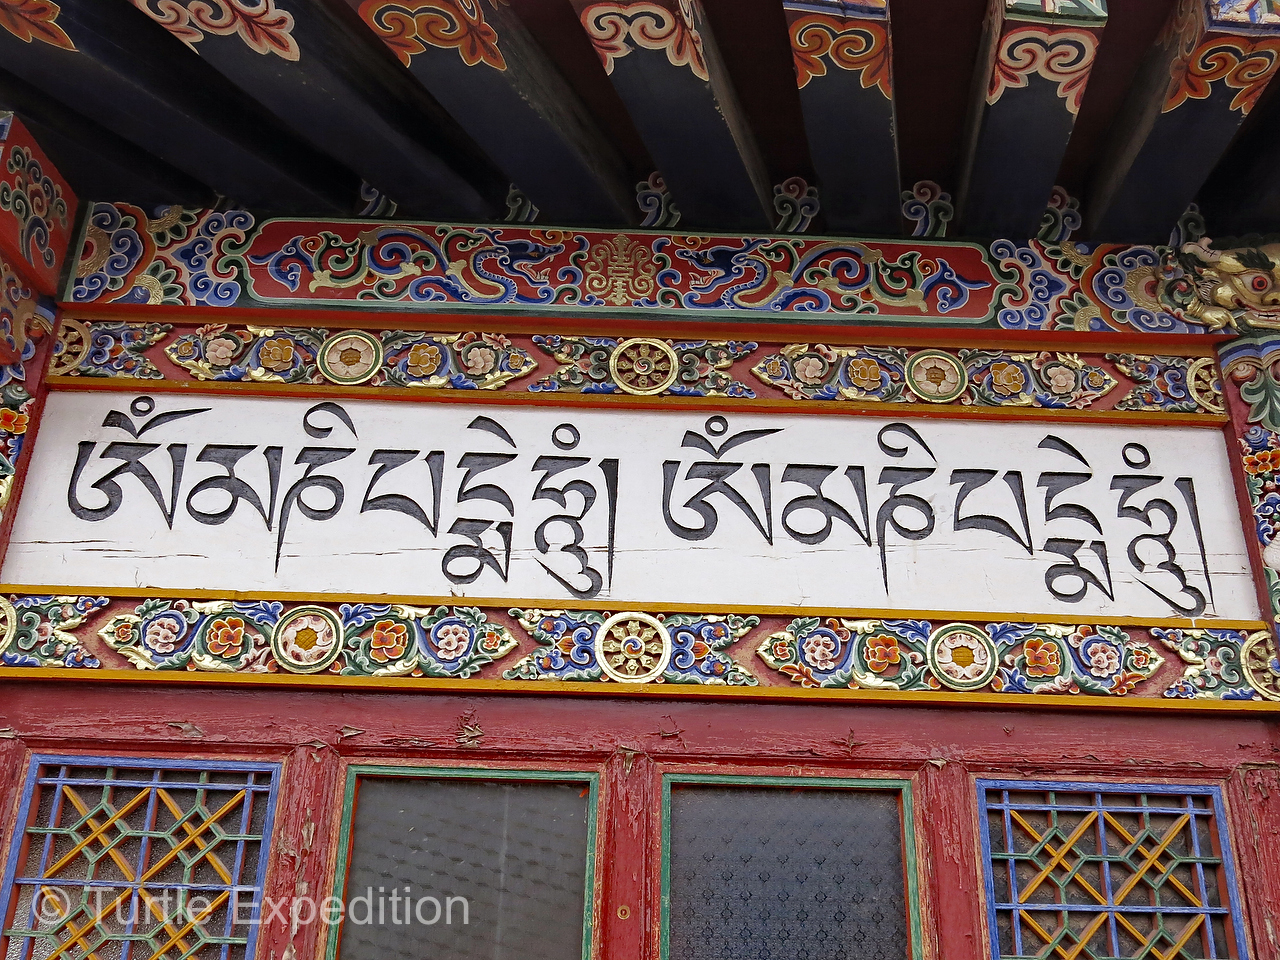 ༀམཎིཔདྨེཧཱུྃ། ༀམཎིཔདྨེཧཱུྃ།
© Turtle Expedition